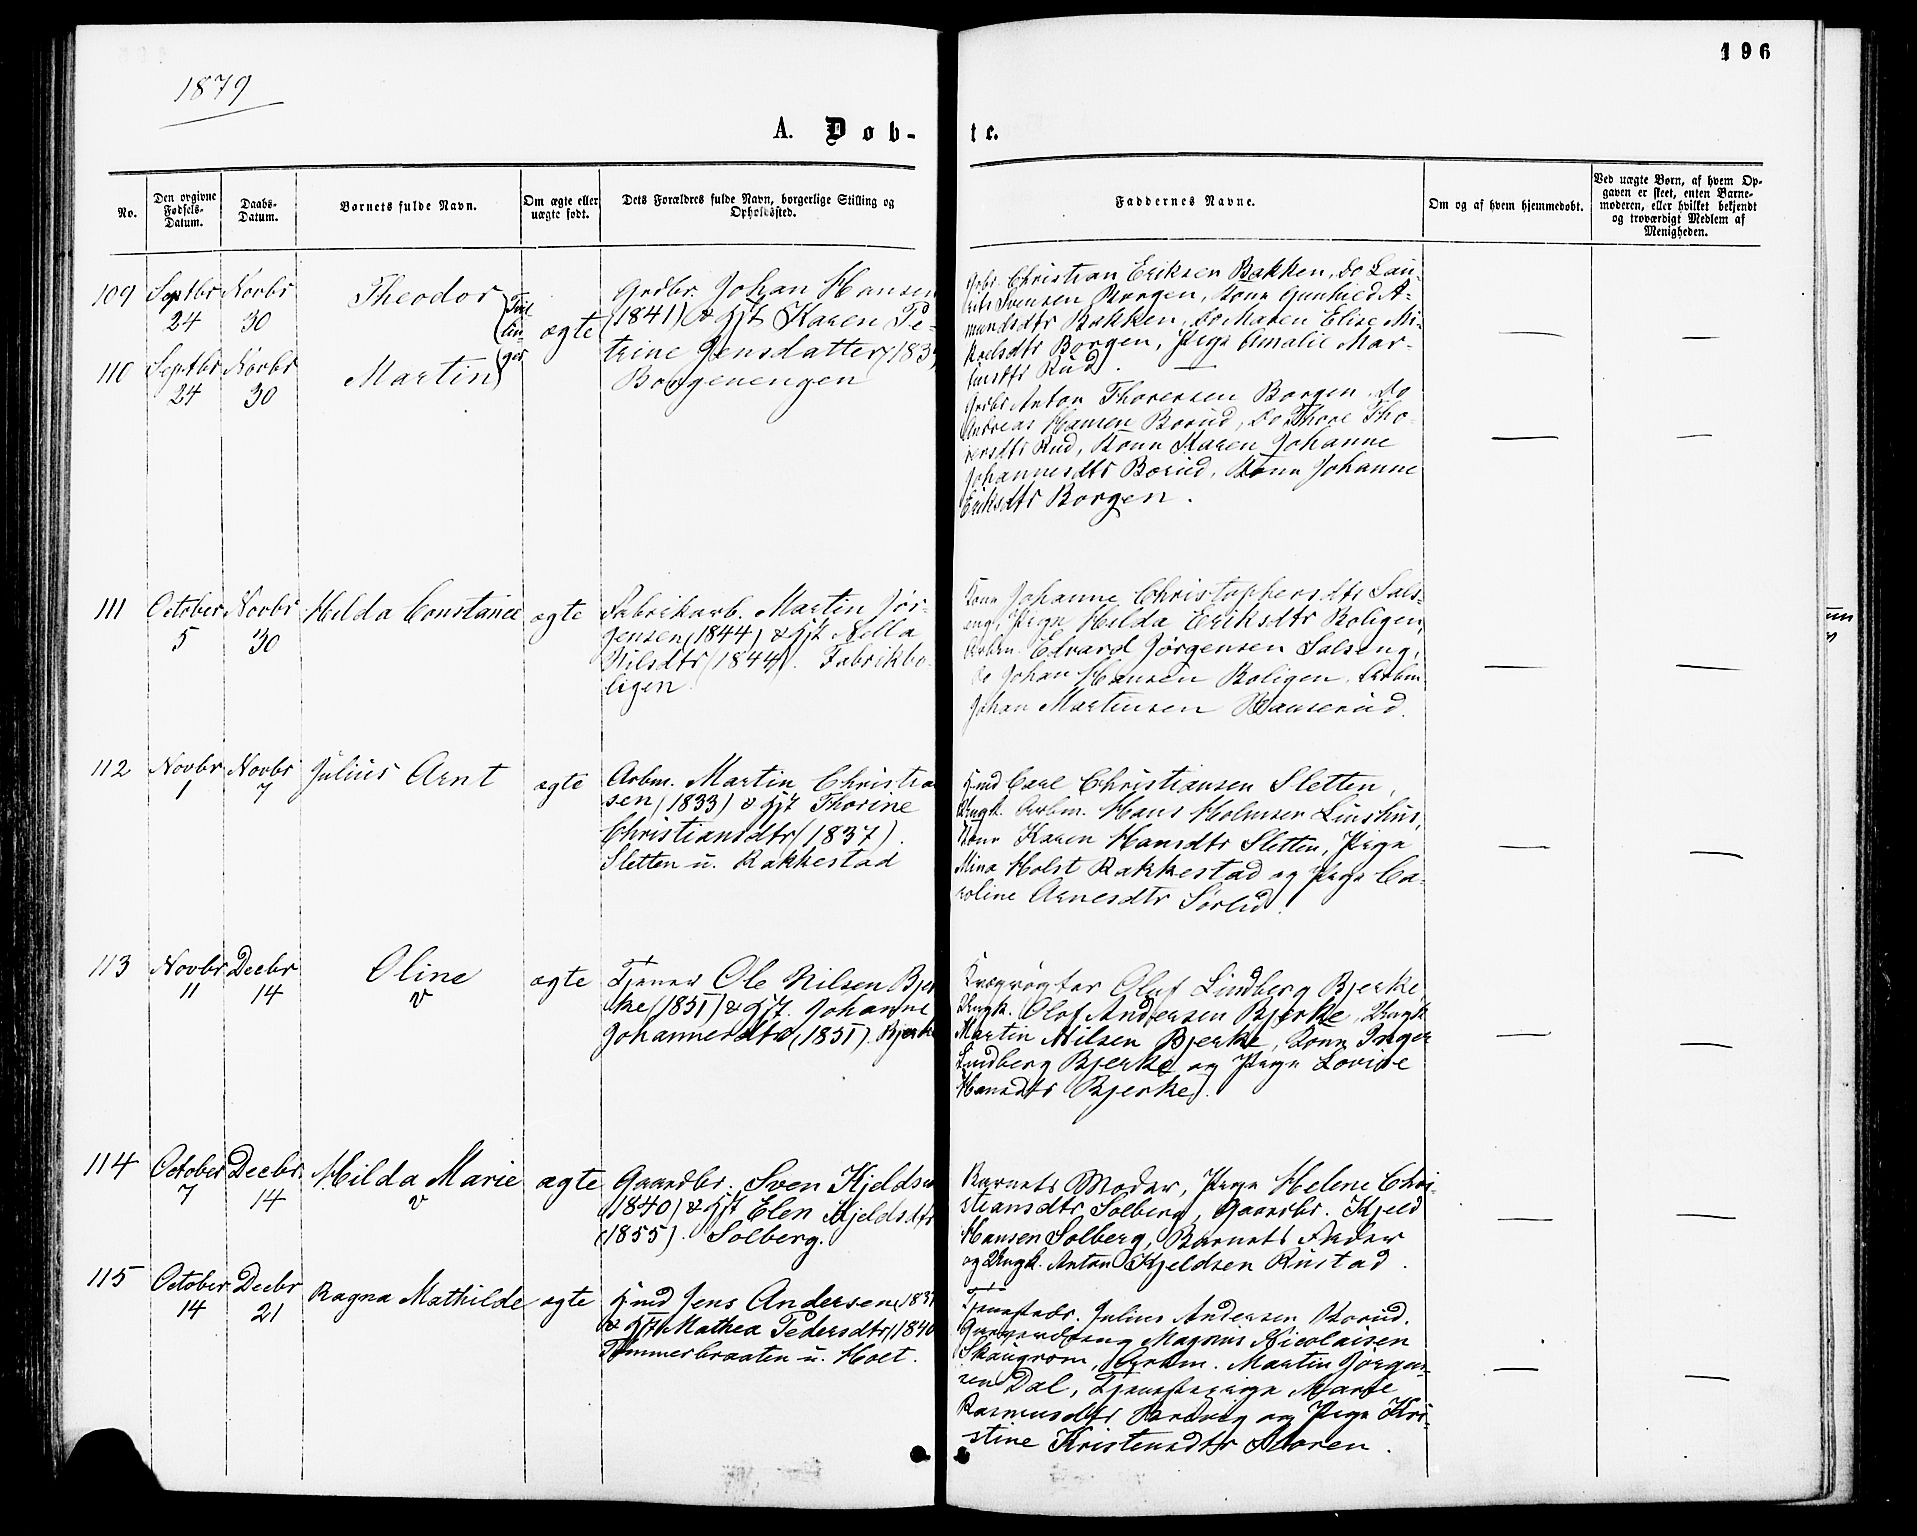 1879
196
A. Døb-
te.
No.
Den opgivne
Fødsels-
Datum.
Daabs-
Datum.
Barnets fulde Navn.
Om ægte eller
uægte født.
Dets Forældres fulde Navn, borgerlige Stilling og
Opholdssted.
Faddernes Navne.
Om og af hvem hjemmedøbt.
Ved uægte Børn, af hvem Op-
gaven er skeet, enten Barne-
moderen, eller hvilket bekjendt
og troværdigt Medlem af
Menigheden.
109 Septbr 24 Novbr 30 Theodor
110 Septbr 24 Novbr 30 Martin
ægte
Grdbr. Johan Hansen
(1841) & Hst Karen Pe-
trine Jensdatter (183
Borgenengen
Christian Eriksen Bakken, do Lau-
rits Svensen Borgen, Kone Gunhild A-
mundsdtr Bakken, do Maren Elise Mi-
kelsdtr Borgen, Pige Amalie Mar-
tinsdtr Rud.
Grdbr Anton Thoresen Borgen, do
Andreas Hansen Borud, do Thore Tho-
Rud, Kone Karen Johanne
Johannesdtr Borud, Kone Johanne
Eriksdtr Borgen.
111 October 5 Novbr 30 Hilda Constance ægte
Fabrikarb. Martin Jør-
gensen (1844) & Hst
Nilsdtr (1844). Fabrikbo-
ligen.
Kone Johanne Christophersdtr Sals-
eng, Pige Hilda Eriksdtr Boligen,
Arbm. Edvard Jørgensen Salseng,
do Johan Hansen Boligen, Arbm
Johan Martinsen
112 Novbr 1 Novbr 7 Julius Arnt ægte
Arbm. Martin Christia
sen (1833) & Hst Thorine
Christiansdtr (1837).
Sletten u. Rakkestad
Hmd Carl Christiansen Sletten,
Ungk. Arbm. Hans Holmsen
Kone Karen Hansdtr Sletten, Pige
Mina Holst Rakkestad og Pige Ca-
roline Arnesdtr Sørlid.
113 Novbr 11 Decbr 14 Oline v ægte
Tjener Ole Nilsen Bjer
ke (1851) & Hst. Johanne
Johannesdtr (1851). Bjerke
Kvægrøgter Oluf Lindberg Bjerke,
Ungk. Olof Andersen Bjerke, Ungk
Martin Nilsen Bjerke, Kone Inger
Lindberg Bjerke og Pige Lovise
Hansdtr Bjerke.
114 October 7 Decbr. 14 Hilda Marie v ægte
Gaardbr. Sven Kjeldsen
(1840) & Hst Elen Kjeldsdtr
(1855). Solberg.
Barnets Moder, Pige Helene Chri-
stiansdtr Solberg, Gaardbr. Kjeld
Hansen Solberg, Barnets Fader
og Ungk. Anton Kjeldsen Rustad.
115 October 14 Decbr 21 Ragna Mathilde ægte
Hmd Jens Andersen (183
& Hst Mathea Pedersdtr (1840
Tømmerbraaten u. Holt.
Julius Andersen Borud.
Magnus Nicolaisen
Skaugrom, Arbm. Martin Jørgen-
sen Dal, Tjenestepige Marte
Rasmusdtr og Pige Kri-
stine Kristensdtr